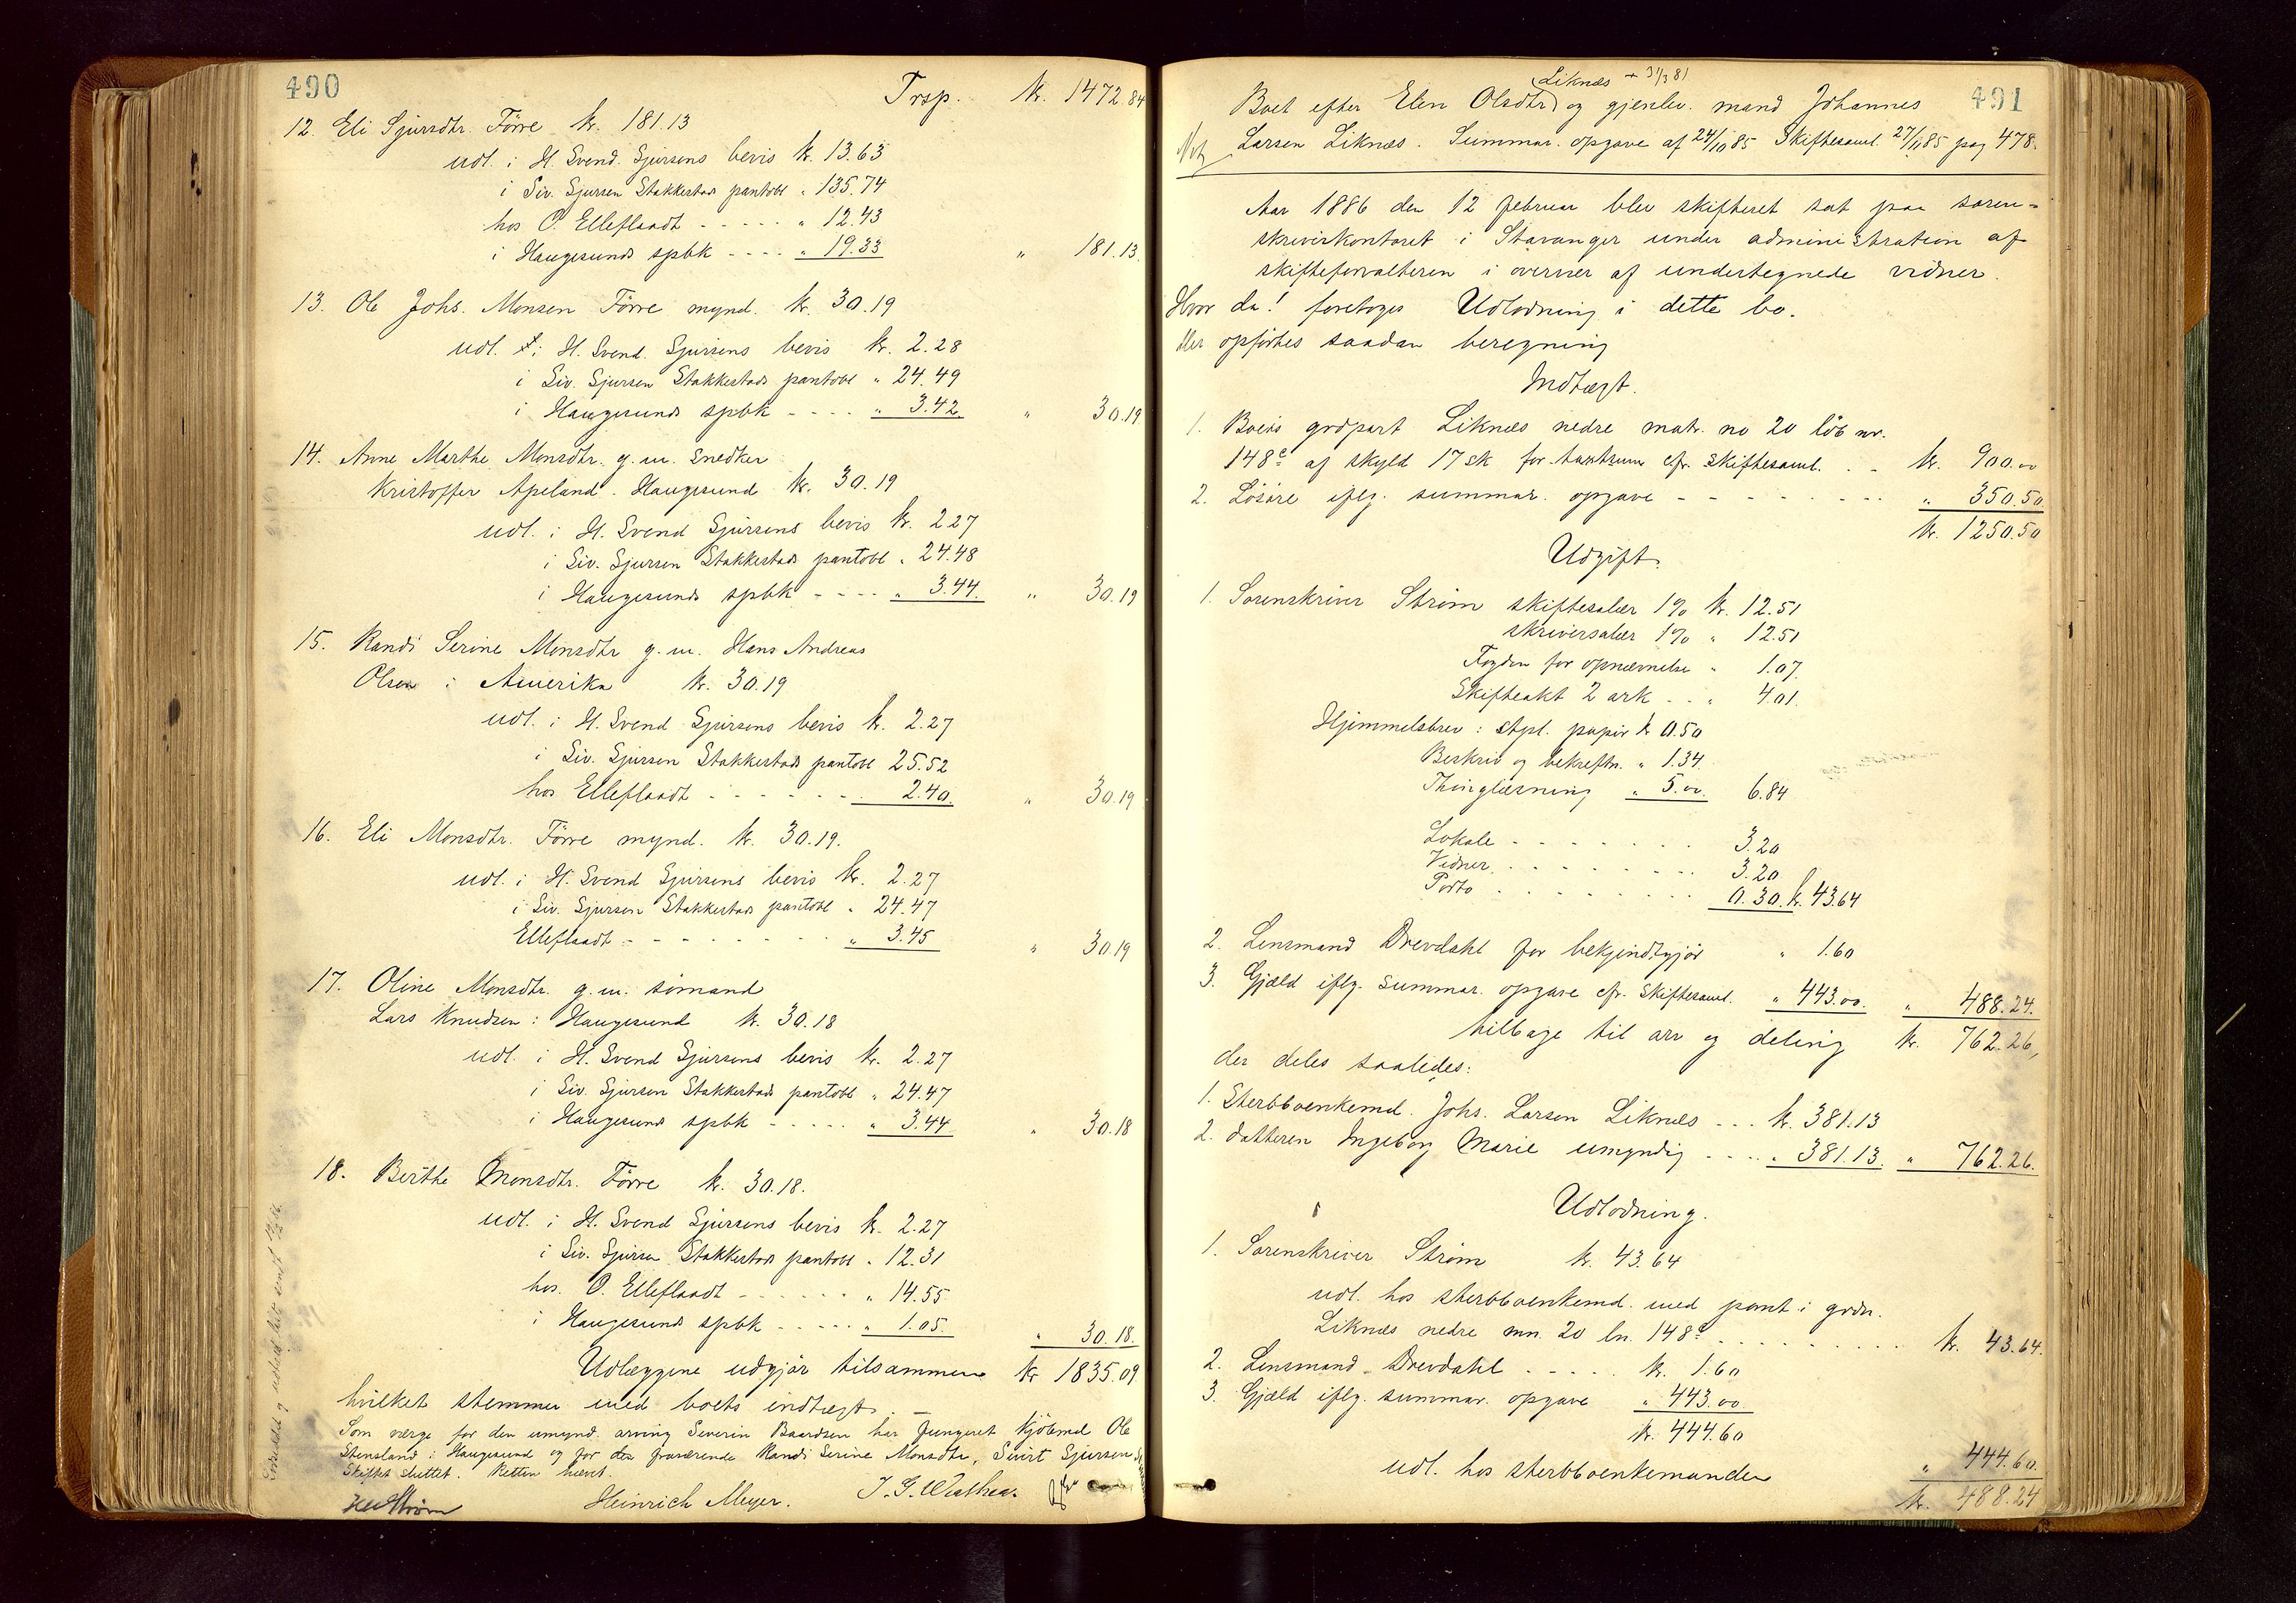 490
Trsp. Kr. 1472.84
12. Eli Sjursdtr. Förre kr. 181.13
udl. i H. Svend. Sjursens bevis kr. 13.63
i Siv. Sjursen Stakkestads pantobl " 135.74
hos O. Elleflaadt - - - - - " 12.43
i Haugesunds spbk - - - - " 19.33 " 181.13.
13. Ole Johs. Monsen Förre mynd. kr. 30.19
udl. i H. Svend. Sjursens bevis kr. 2.28
i Siv. Sjursen Stakkestads pantobl " 24.49
i Haugesunds spbk - - - - " 3.42. " 30.19
14. Anne Marthe Monsdtr. g.m. snedker
Kristoffer Apeland. Haugesund kr. 30.19
udl. i H. Svend Sjursens bevis kr. 2.27
i Siv. Sjursen Stakkestads pantobl " 24.48
i Haugesunds spbk - - - - " 3.44. " 30.19
15. Randi Serine Monsdtr g.m. Hans Andreas
Olsen i Amerika kr. 30.19
udl. i H. Svend Sjursens bevis kr. 2.27
i Siv. Sjursen Stakkestads pantobl 25.52
hos Elleflaadt - - - - - - 2.40. " 30.19
16. Eli Monsdtr. Förre mynd. kr. 30.19.
udl. i H. Svend Sjursens bevis kr. 2.27
i Siv. Sjursen Stakkestads pantobl " 24.47
Elleflaadt - - - - - - - - " 3.45 " 30.19
17. Oline Monsdtr. g.m. sömand
Lars Knudsen i Haugesund kr. 30.18
udl. i H. Svend Sjursens bevis kr. 2.27
i Siv. Sjursen Stakkestads pantobl " 24.47
i Haugesunds spbk - - - - - " 3.44 " 30.18
18. Berthe Monsdtr. Förre kr. 30.18.
udl. i H. Svend Sjursens bevis kr. 2.27
i Siv. Sjursen Stakkestads pantobl " 12.31
hos. O. Elleflaadt - - - - - - " 14.55
i Haugesunds spbk - - - - - " 1.05. " 30.18.
Udlæggene udgjör tilsammen kr 1835.09
hvilket stemmer med boets indtægt. -
Som værge for den umynd. arving Severin Baardsen har fungeret kjöbmd Ole
Stensland i Haugesund og for den fraværende Randi Serine Monsdtr, Sivert Sjursen
Skiftet sluttet. Retten hævet.
Heinrich Meyer. T. G. Wathne.
491
Liknæs + 31/3 81
Boet efter Elen Olsdtr. og gjenlev. mand Johannes
Larsen Liknæs. Summar. opgave af 24/10 85 Skiftesaml. 27/11 85 pag 478.
Aar 1886 den 12 februar blev skifteret sat paa soren-
skriverkontoret i Stavanger under administration af
skifteforvalteren i overvær af undertegnede vidner.
Hvor da! foretoges Udlodning i dette bo.
Der opförtes saadan beregning
Indtægt.
1. Boets grdpart Liknæs nedre matr. no 20 löb nr.
148c af skyld 17 sk for taxtsum cfr. skiftesaml. . - kr. 900.00
2. Lösöre iflg. summar. opgave - - - - - - - " 350.50
kr. 1250.50
Udgift.
1. Sorenskriver Ström skiftesalær 1% kr. 12.51
skriversalær 1% " 12.51
Fogden for opnævnelse " 1.07.
Skifteakt 2 ark - . " 4.01.
Hjemmelsbrev: stpl. papir kr 0.50
Beskriv og bekreftn. " 1.34.
Thinglæsning " 5.00. 6.84
Lokale - - - - - - - 3.20
Vidner. - - - - - - - 3.20
Porto - - - - - - - 0.30. kr. 43.64
2. Lensmand Drevdahl for bekjendtgjör " 1.60
3. Gjæld iflg. summar. opgave cfr. skiftesaml. " 443.00. " 488.24.
tilbage til arv og deling kr. 762.26,
der deles saaledes:
1. Sterbboenkemd. Johs. Larsen Liknæs - - - kr. 381.13
2. datteren Ingeborg Marie umyndig - - - - " 381.13. " 762.26.
Udlodning.
1. Sorenskriver Ström kr. 43.64
udl. hos sterbboenkemd. med pant i grdn.
Liknæs nedre mn. 20 ln. 148c - - - - - - - - kr. 43.64.
2. Lensmand Drevdahl - - - - - kr. 1.60
3. Gjæld iflg. summar. opgave " 443.00
kr. 444.60
udl. hos sterbboenkemanden " 444.60.
kr. 488.24